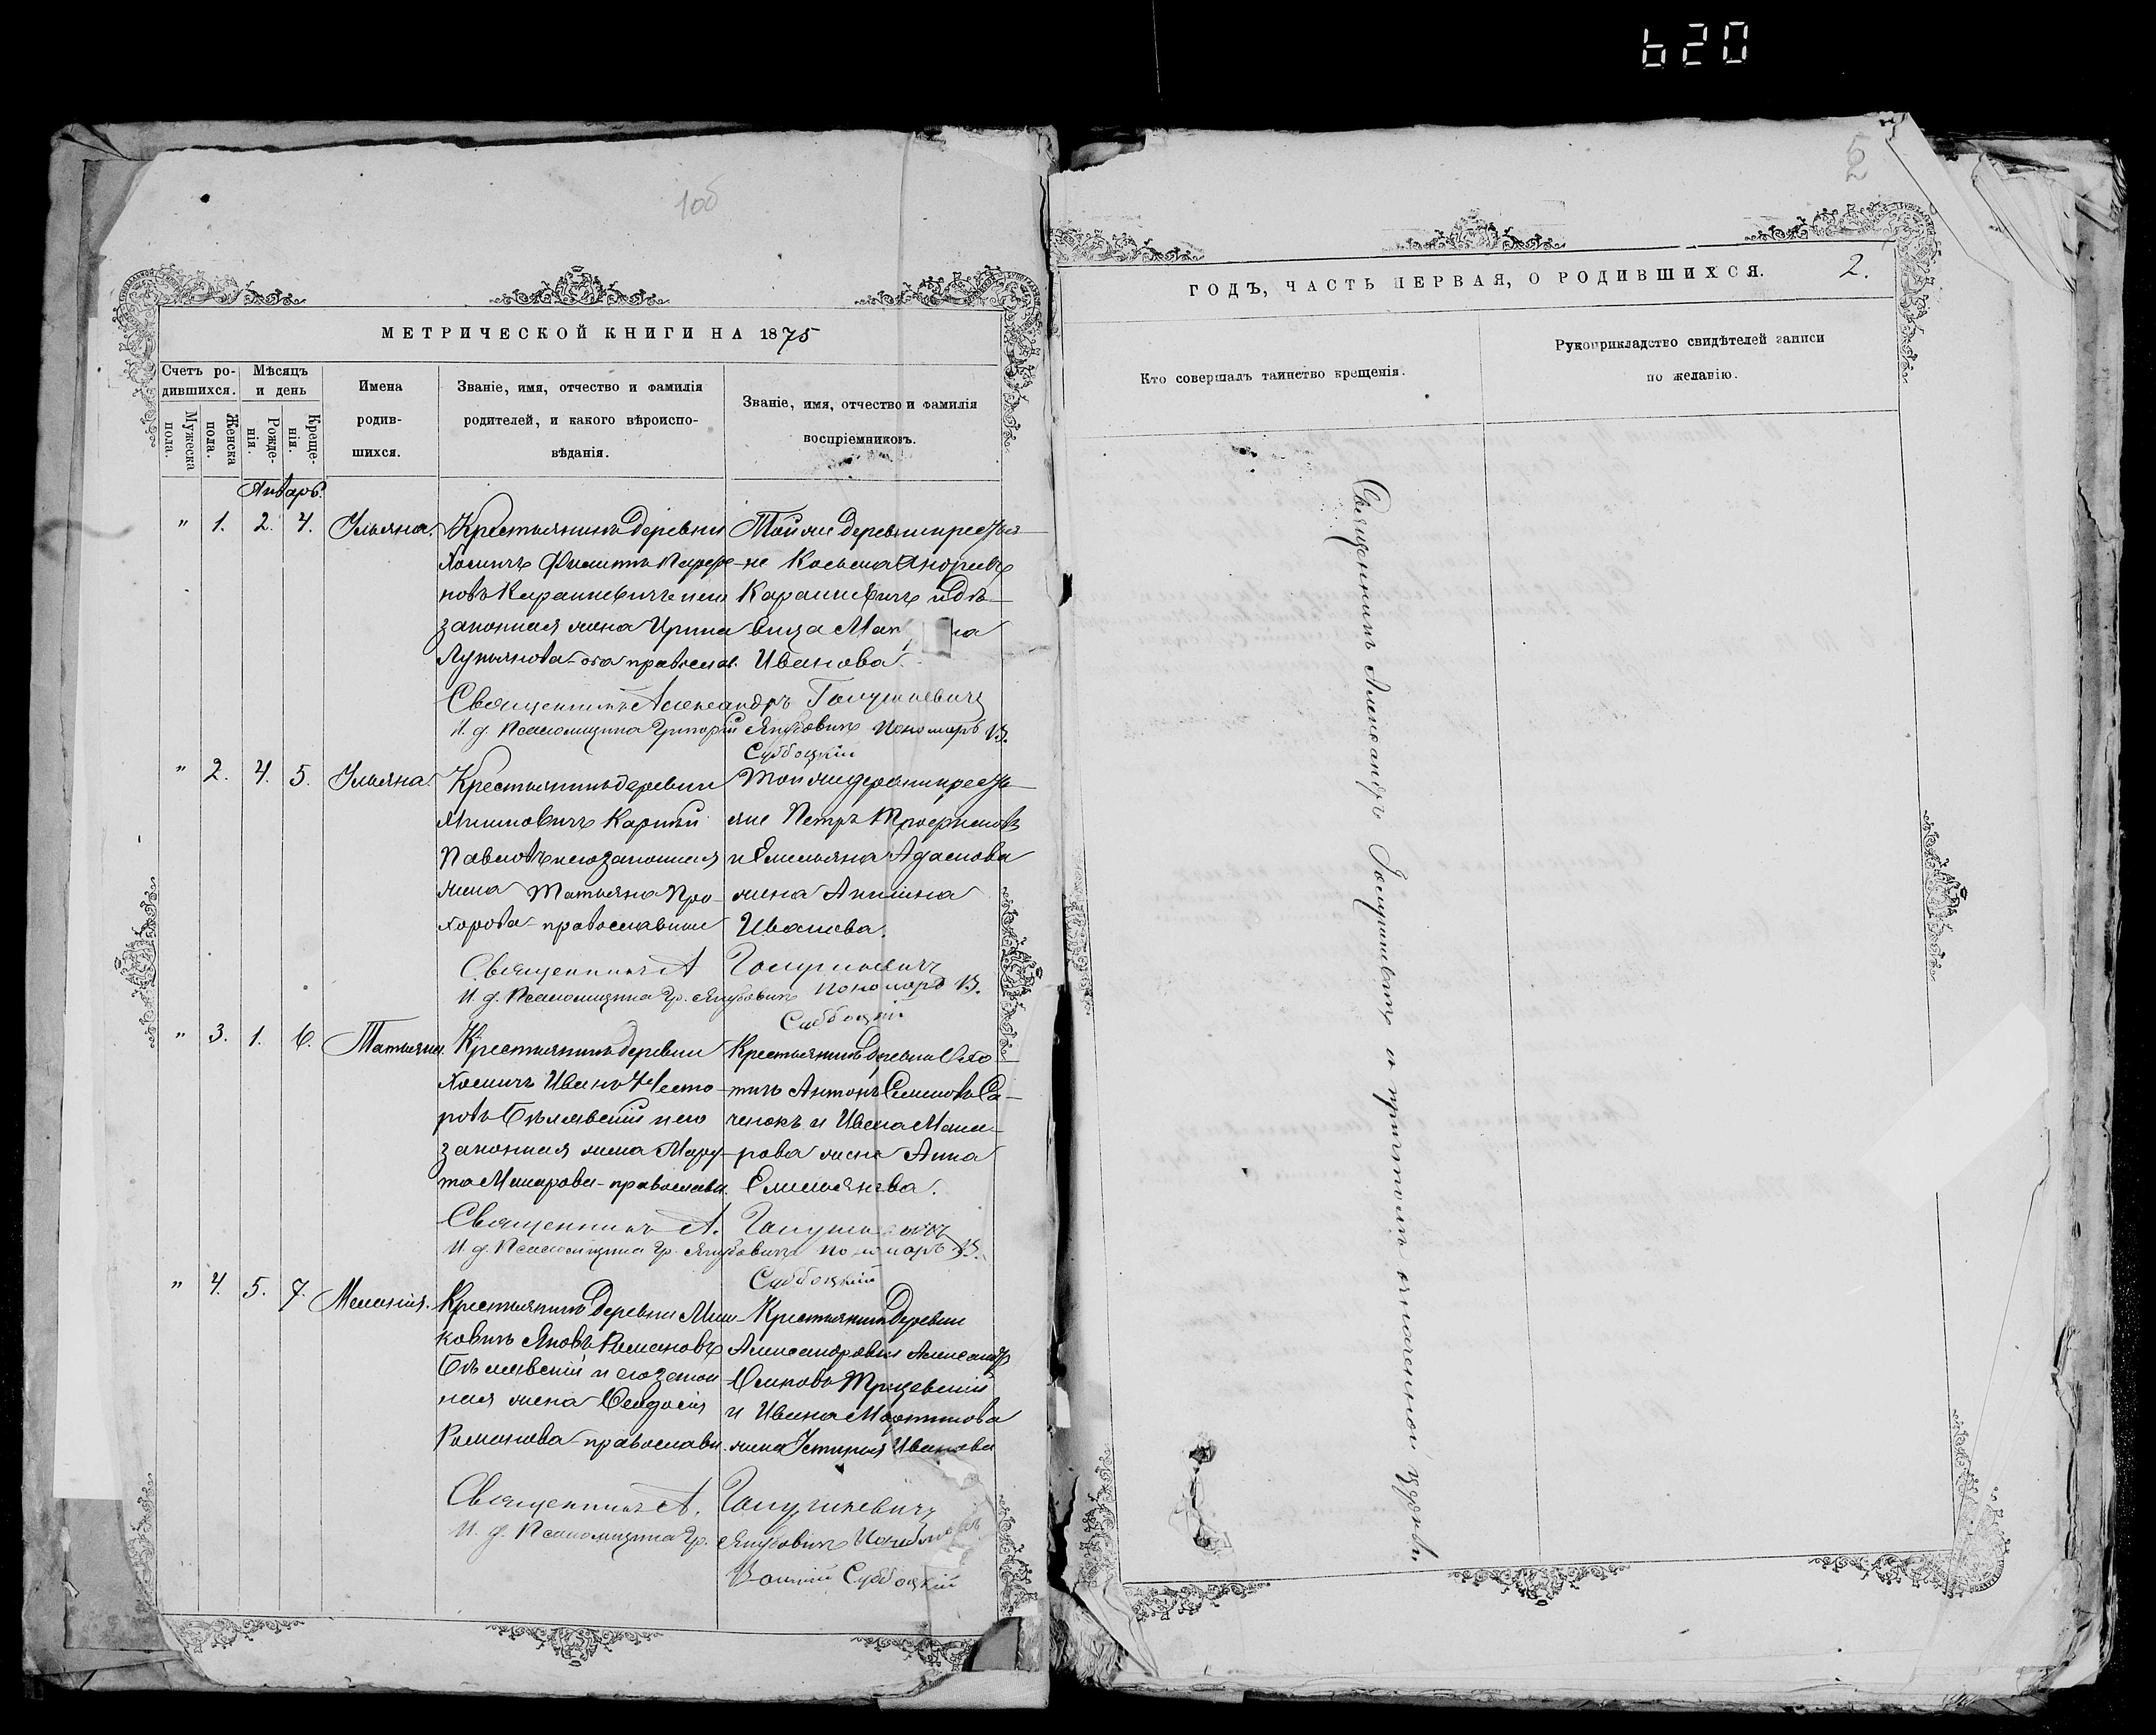 620
100
5
2
МЕТРИЧЕСКОЙ КНИГИ НА 1875
Счетъ ро-
дившихся.
Мужеска
пола.
Женска
пола.
Мѣсяцъ
и день
Рожде-
нія.
Креще-
нія.
Имена
родив-
шихся.
Званіе, имя, отчество и фамилія
родителей, и какого вѣроиспо-
вѣданія.
Званіе, имя, отчество и фамилія
воспріемниковъ.
Январь.
" 1. 2. 4. Ульяна.
Крестьянинъ деревни
Хоминъ Филиппъ
и его
законная жена Ирина
Лукьянова оба православ.
Той же деревни крестья-
не Косьма Андреевъ
и
вица
Иванова.
Священникъ Александръ Голушкевичъ
И. д. Псаломщика Григорій Якубовичъ Пономарь В.
Субботскій
" 2. 4. 5. Ульяна.
Крестьянинъ деревни
Карпъ
Павловъ и его законная
жена Татьяна Про-
хорова православные
Той же деревни кресть-
яне Петръ Трофимовъ
и Емельяна Адамова
жена Акилина
Иванова.
Священникъ А Голушкевичъ
И. д. Псаломщика Гр. Якубовичъ Пономарь В.
Субботскій
" 3. 1. 6. Татьяна.
Крестьянинъ деревни
Хоминъ Иванъ Несто-
ровъ Бѣлявскій и его
законная жена Мар-
та Макарова православн.
Крестьянинъ деревни
Антонъ Семеновъ Са-
ченокъ и Ивана Мака-
рова жена Анна
Емельянова.
Священникъ А. Голушкевичъ
И. д. Псаломщика Гр. Якубовичъ Пономарь В.
Субботскій
" 4. 5. 7. Меланія.
Крестьянинъ деревни
Яковъ Романовъ
Бѣлявскій и его закон-
ная жена Ѳеодосія
Романова православн.
Крестьянинъ деревни
Александровки Александръ
и Ивана Мартинова
жена Устинья Иванова
Священникъ А. Голушкевичъ
И. д. Псаломщика Гр. Якубовичъ Пономарь
Субботскій
ГОДЪ, ЧАСТЬ ПЕРВАЯ, О РОДИВШИХСЯ.
2.
Кто совершалъ таинство крещенія.
Рукоприкладство свидѣтелей записи
по желанію.
Священникъ Александръ Голушкевичъ с причтомъ означенной церкви.